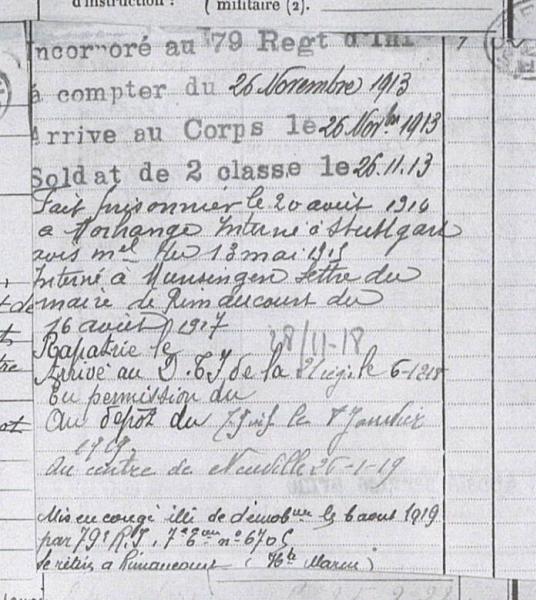 d'instruction :
militaire (2).
Incorporé au 79 Regt d'Inf
7
à compter du 26 Novembre 1913
Arrive au Corps le 26 Novbre 1913
Soldat de 2 classe le 26.11.13
Fait prisonnier le 20 août 1914
a Morhange Interné à Stuttgart
avis mel du 13 mai 1915
Interné à Munsingen lettre du
maire de Rimaucourt du
16 août 1917
Rapatrié le 28/11-18
Arrivé au D.T.I de la 21e le 6-12 18
En permission du
Au dépôt du le 7 Janvier
1919
Au centre de Neuville 25-1-19
Mis en congé illi de démob le 6 aout 1919
par 79e R.I. n° 6705
Se retire a Rimaucourt (Hte Marne)